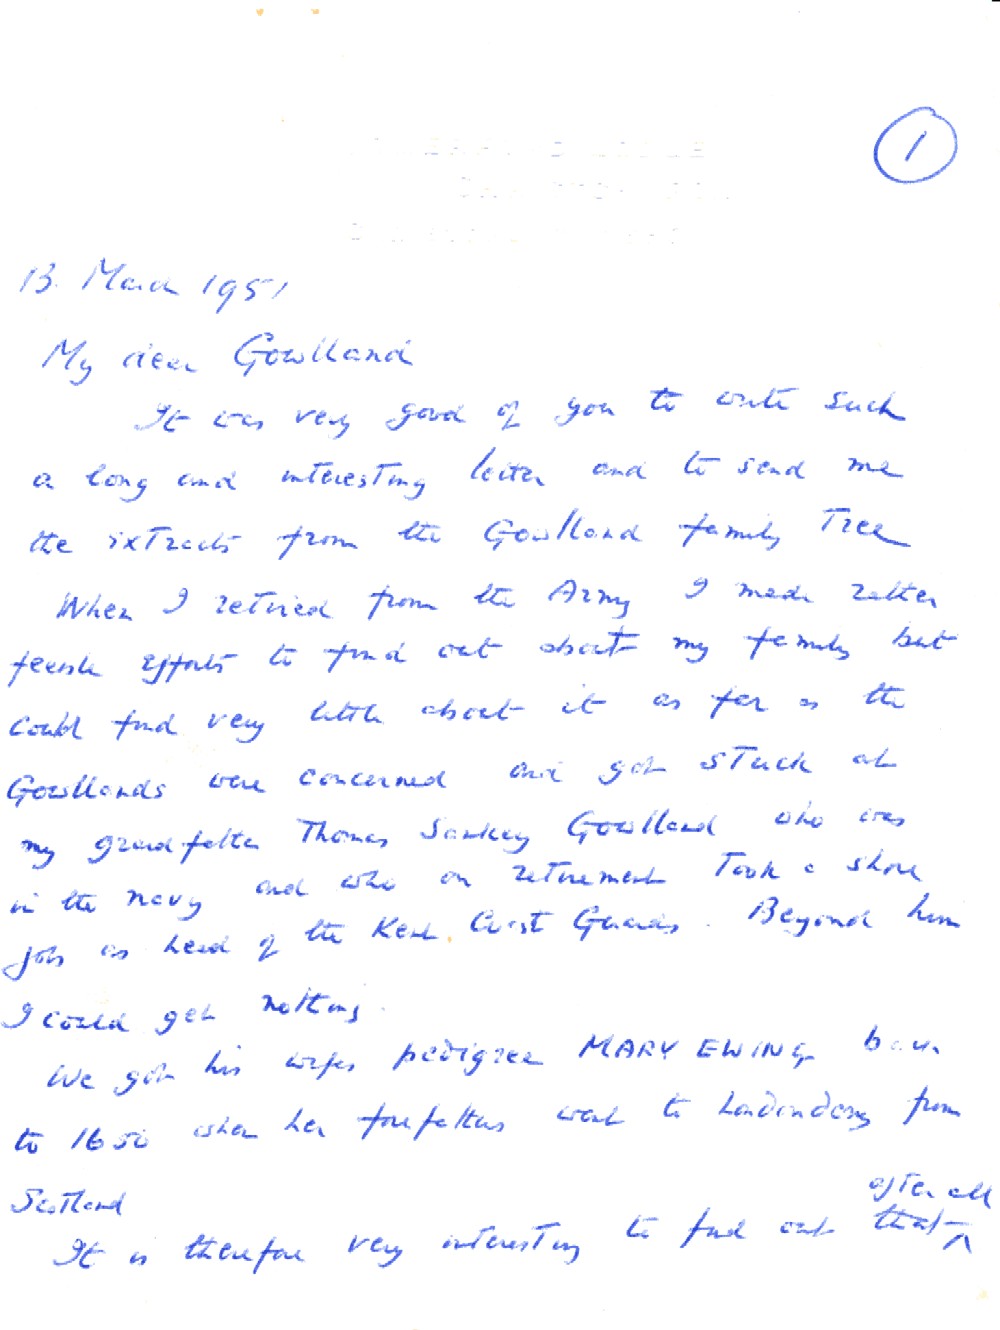 1
13. March 1951
My dear Gowlland
It was very good of you to write such
a long and interesting letter and to send me
the extracts from the Gowlland family Tree
When I retired from the Army I made rather
feeble efforts to find out about my family but
could find very little about it as far as the
Gowllands were concerned and got stuck at
my grandfather Thomas Sankey Gowlland who was
in the navy and who on retirement Took a shore
job as head of the Kent Coast Guards. Beyond him
I could get nothing.
We got his wifes pedigree MARY EWING back
to 1650 when her forefathers went to Londonderry from
Scotland
It is therefore very interesting to find out that after all